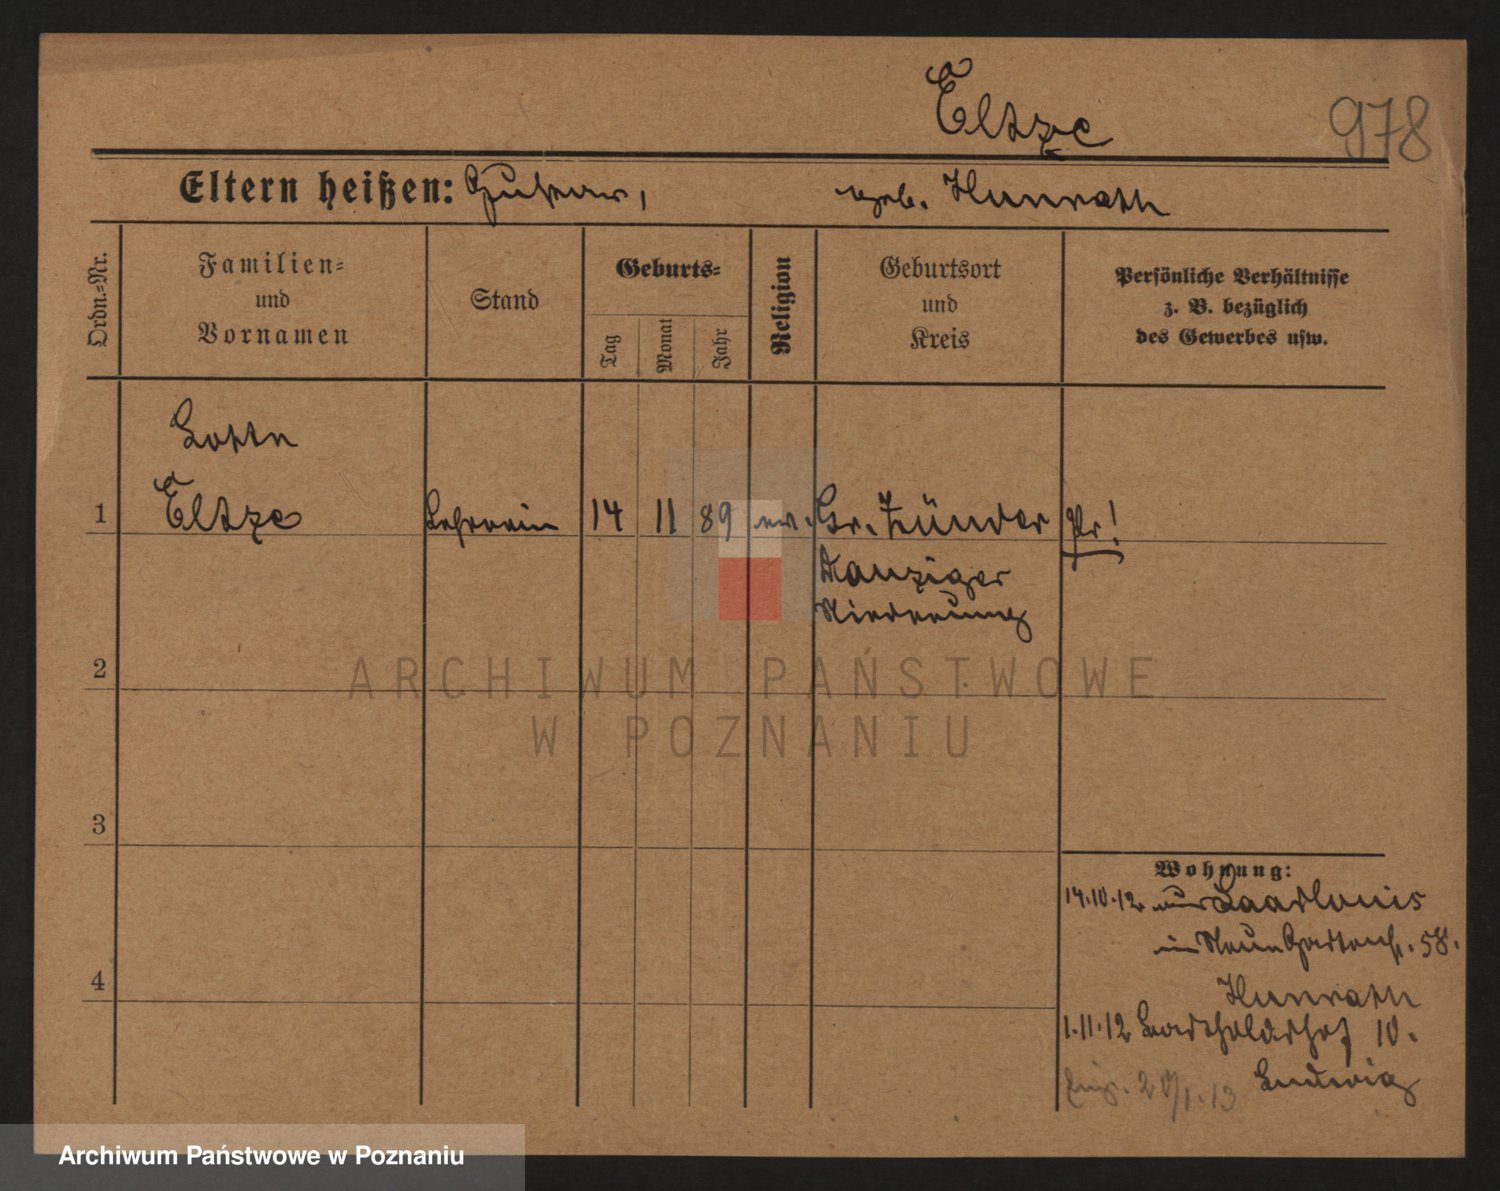 Eltze
978
Eltern heißen: Gustav, geb. Hunrath
Ordn.-Nr.
Familien-
und
Vornamen
Stand
Geburts-
Tag
Monat
Jahr
Religion
Geburtsort
und
Kreis
Persönliche Verhältnisse
z. B. bezüglich
des Gewerbes usw.
Lotte
1 Eltze Lehrerin 14 11 89 ev. Gr. Zünder Pr!
Danziger
Niederung
2
3
4
Wohnung:
14.10.12 aus Saarlouis
in Neue Gartenstr. 58.
Hunrath
1.11.12 Bartholdshof 10.
Ludwig
ARCHIWUM PAŃSTWOWE
W POZNANIU
Archiwum Państwowe w Poznaniu